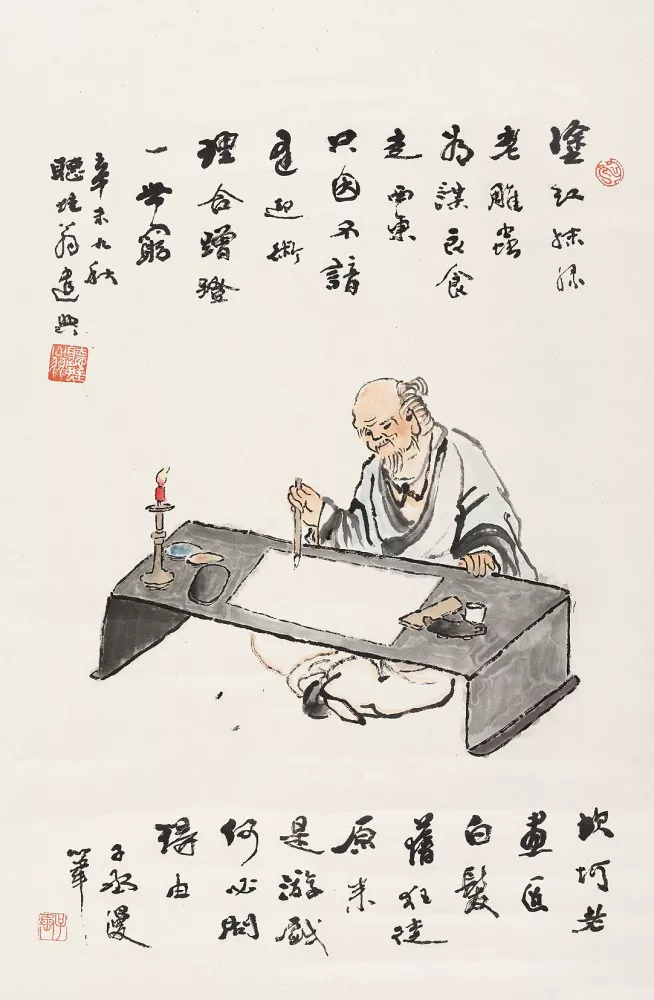 塗紅抹綠
老雕蟲
為謀衣食
走西東
只因不諳
逢迎術
理合蹭蹬
一世窮
辛未九秋
聽蛙翁遣興
坎坷老
畫匠
白髮
舊狂徒
原来
是游戲
何必問
由
子丞漫
筆